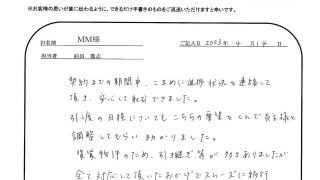 ※お客様の思いが直に伝わるように、できるだけ手書きのものをご返送いただけますと幸いです。
お名前 MM様 ご記入日 2023年 4月 14日
担当者 前田
契約までの期間中、こまめに進捗状況を連絡して
頂き、安心して取引できました。
引渡の日程についてもこちらの要望をくんで売主様と
調整してもらい助かりました。
賃貸物件のため、引き継ぎ等が ありましたが
全て対応して頂いたおかげでスムーズに移行